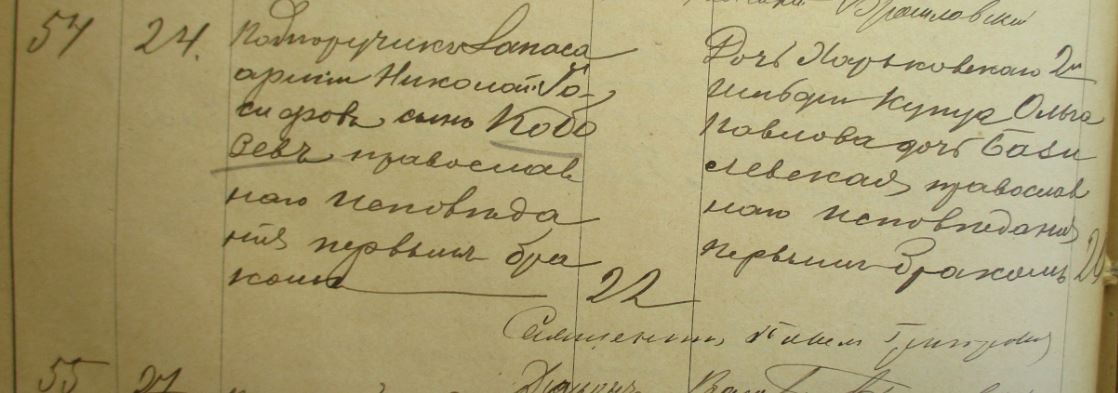 Врашловский
54 24. Подпоручикъ запаса
арміи Николай Іо-
сифовъ сынъ Кобо
зевъ православ
наго исповѣда
нія первымъ бра
комъ 22
Дочь Харьковскаго 2й
гильдіи купца Ольга
Павлова дочь Бази
левская православ
наго исповѣданія
первымъ бракомъ
Священникъ Павелъ Григоровичъ
55 27